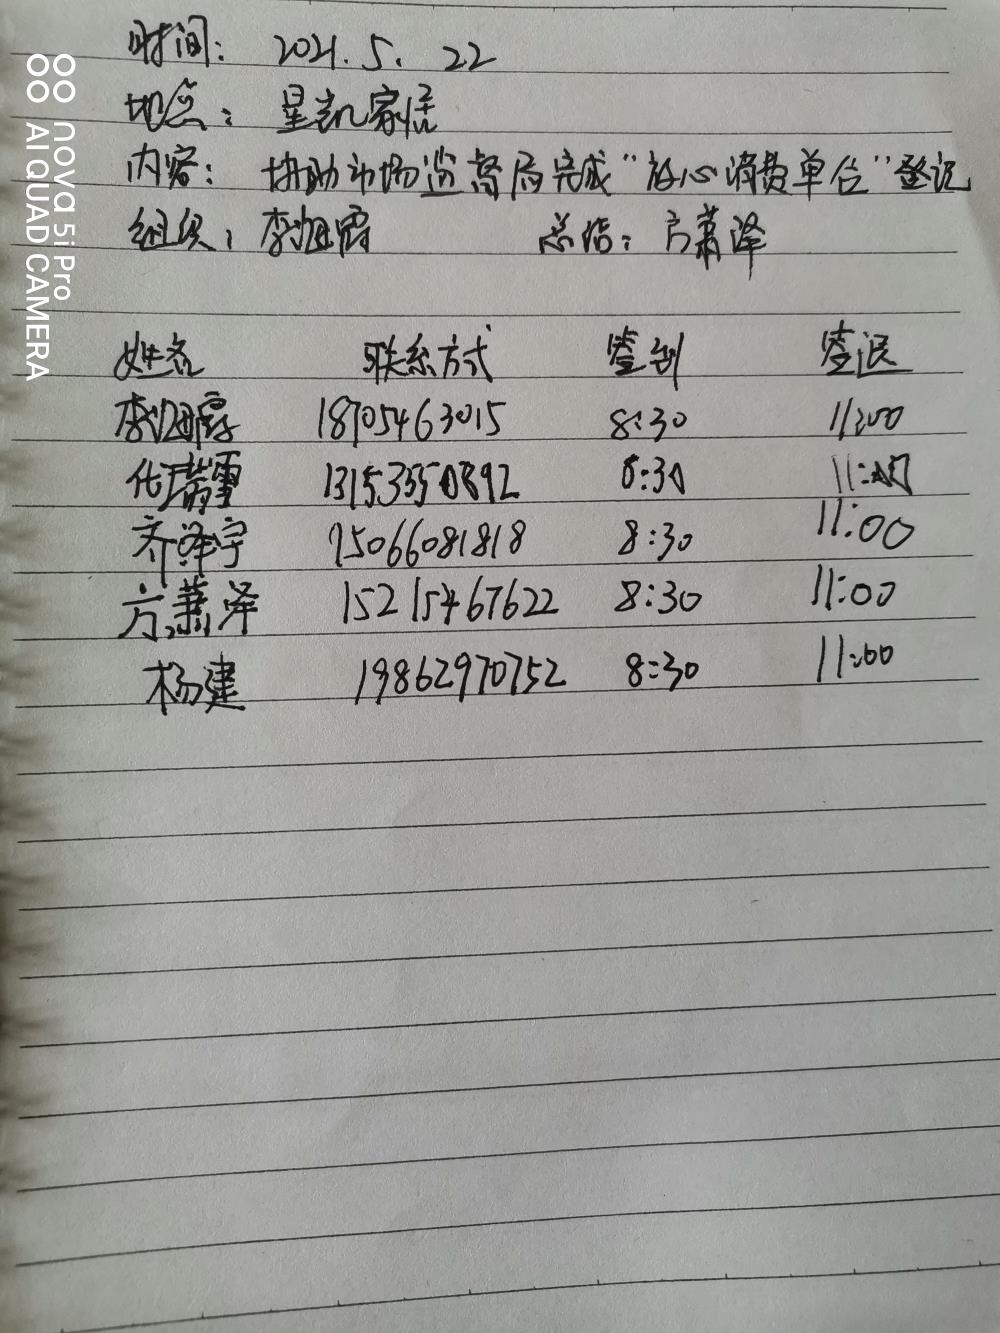 时间: 2021.5.22
地点: 星凯家居
内容: 协助市场监督局完成“放心消费单位”登记
组织: 李旭霞 总结: 方萧泽
姓名 联系方式 签到 签退
李旭霞 18705463015 8:30 11:00
化瑞雪 13153350892 8:30 11:00
齐泽宇 15066081818 8:30 11:00
方萧泽 15215467622 8:30 11:00
杨建 19862970752 8:30 11:00
nova 5i Pro
AI QUAD CAMERA